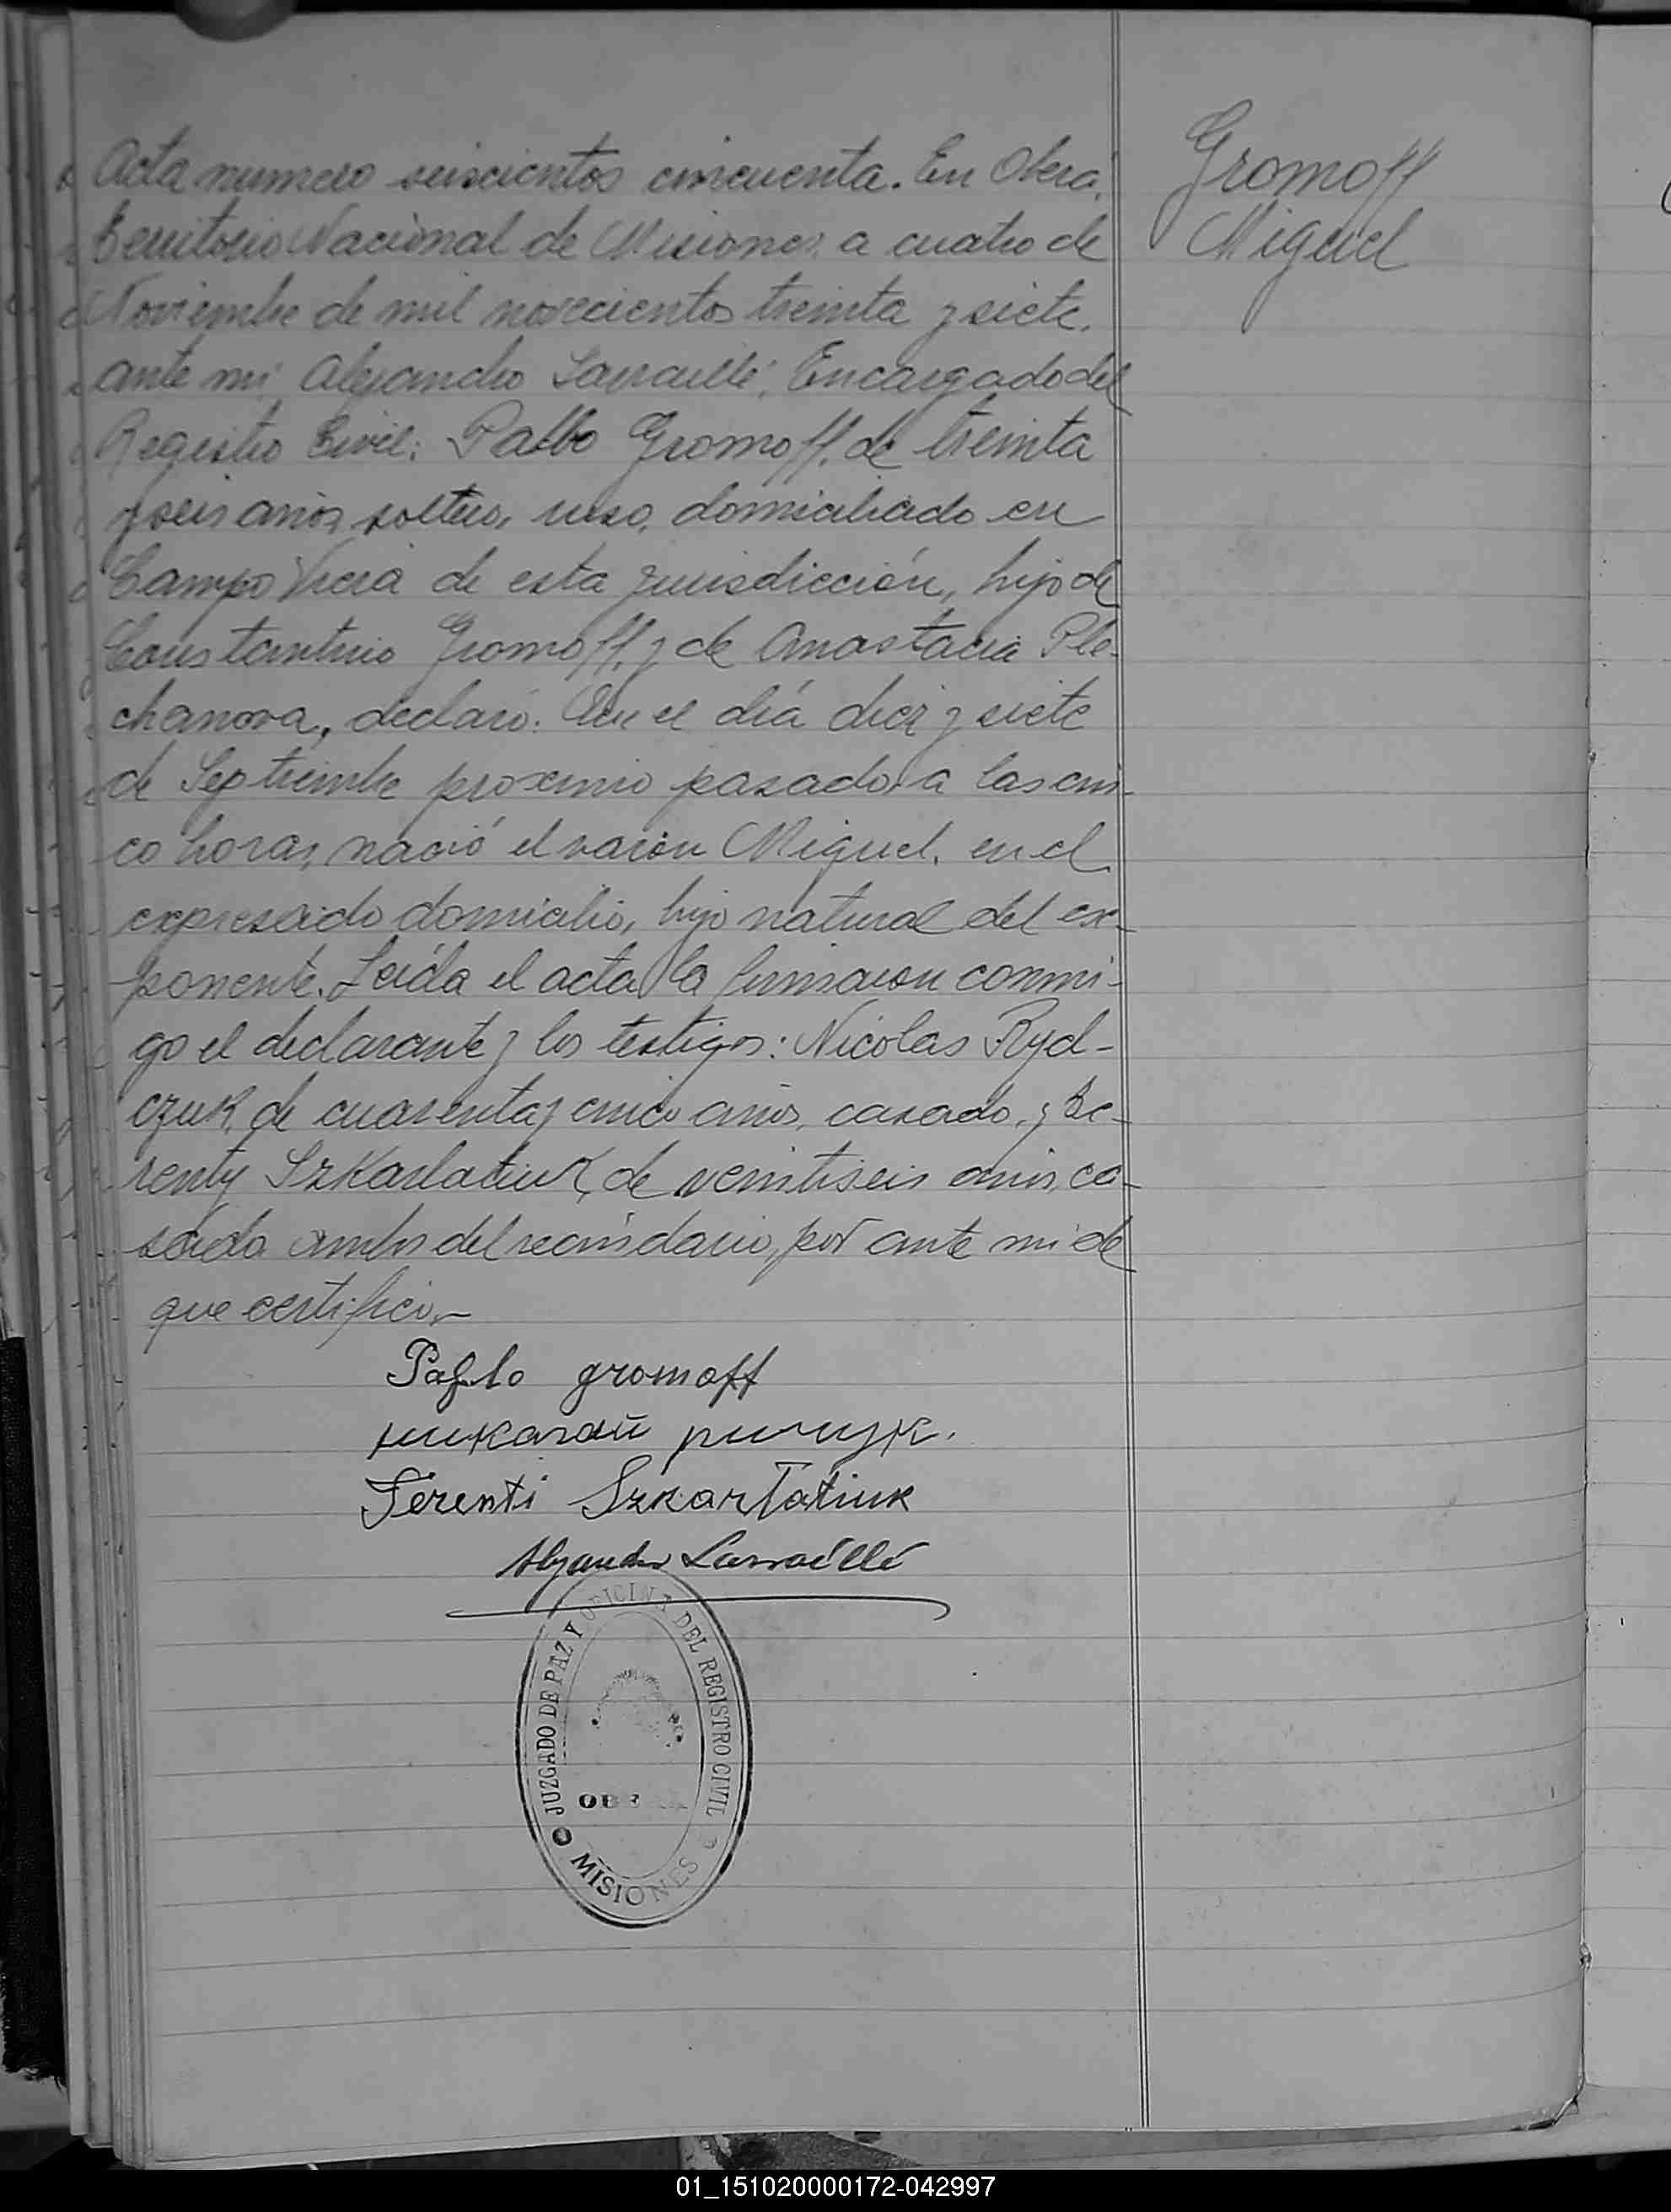 Acta numero seiscientos cincuenta. En Oberá,
Territorio Nacional de Misiones, a cuatro de
Noviembre de mil novecientos treinta y siete,
ante mi Alejandro Larraillé, Encargado del
Registro Civil: Pablo Gromoff, de treinta
y seis años, soltero, ruso, domiciliado en
Campo Viera de esta jurisdicción, hijo de
Constantino Gromoff, y de Anastacia Ple-
chanova, declaró: Que el día diez y siete
de Septiembre proximo pasado, a las cin-
co horas, nació el varón Miguel, en el
expresado domicilio, hijo natural del ex-
ponente. Leída el acta la firmaron conmi-
go el declarante y los testigos: Nicolas Ryd-
czuk, de cuarenta y cinco años, casado, y
renty Szkarlatiuk, de veintiseis años, ca-
sado ambos del vecindario, por ante mi de
que certifico.-
Gromoff
Miguel
Pablo gromoff
Terenti Szkarlatiuk
Alejandro Larraillé
JUZGADO DE PAZ Y OFICINA DEL REGISTRO CIVIL
OBERA
MISIONES
01_151020000172-042997